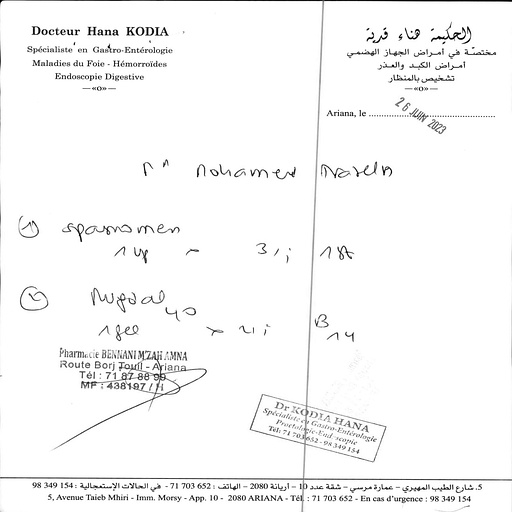 Docteur Hana KODIA
Spécialiste en Gastro-Entérologie
Maladies du Foie - Hémorroïdes
Endoscopie Digestive
—«o»—
الحكيمة هناء قدية
مختصّة في أمراض الجهاز الهضمي
أمراض الكبد والعذر
تشخيص بالمنظار
—«o»—
Ariana, le ........ 26 JUIN 2023
Mohamed
① spasmomen
1 3/j
②
40
Pharmacie BENNANI M'ZAH AMNA
Route Borj Touil - Ariana
Tél : 71 87 88 99
MF : 438197 / H
Dr KODIA HANA
Spécialiste en Gastro-Entérologie
Proctologie-Endoscopie
Tél: 71 703 652 - 98 349 154
5، شارع الطيب المهيري – عمارة مرسي – شقة عدد 10 - أريانة 2080 – الهاتف : 652 703 71 - في الحالات الإستعجالية : 154 349 98
5, Avenue Taieb Mhiri - Imm. Morsy - App. 10 - 2080 ARIANA - Tél. : 71 703 652 - En cas d'urgence : 98 349 154